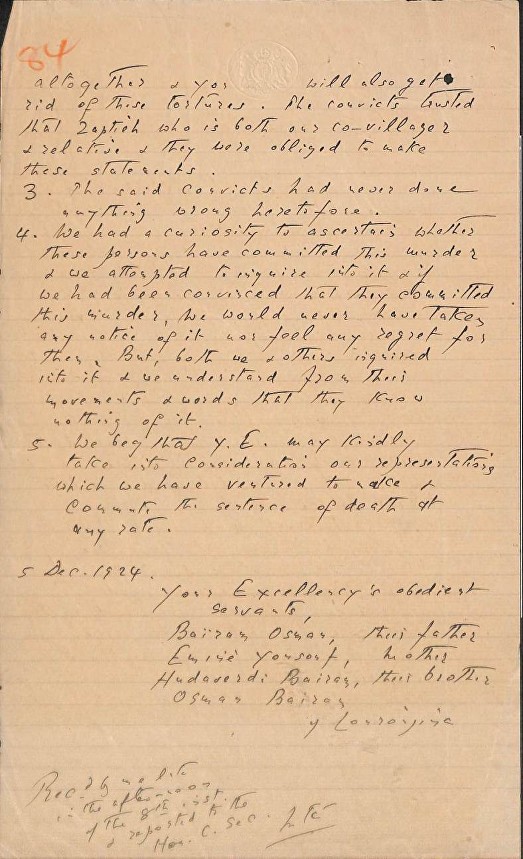 84
altogether & you will also get
rid of these tortures. The convicts trusted
that Zaptieh who is both our co-villager
& relative & they were obliged to make
these statements.
3. The said convicts had never done
anything wrong heretofore.
4. We had a curiosity to ascertain whether
these persons have committed this murder
& we attempted to inquire into it & if
we had been convinced that they committed
this murder, we would never have taken
any notice of it nor feel any regret for
them. But, both we & others inquired
into it & we understand from their
movements & words that they know
nothing of it.
5. We beg that Y. E. may kindly
take into consideration our representations
which we have ventured to make &
commute the sentence of death at
any rate.
5 Dec. 1924.
Your Excellency's obedient
servants,
Bairam Osman, their father
Eminé Yousouf, mother
Hudaverdi Bairam, their brother
Osman Bairam
of Louroujina
Recd by me late
in the afternoon
of the 8th inst.
& reported to the
Hon. C. Sec.